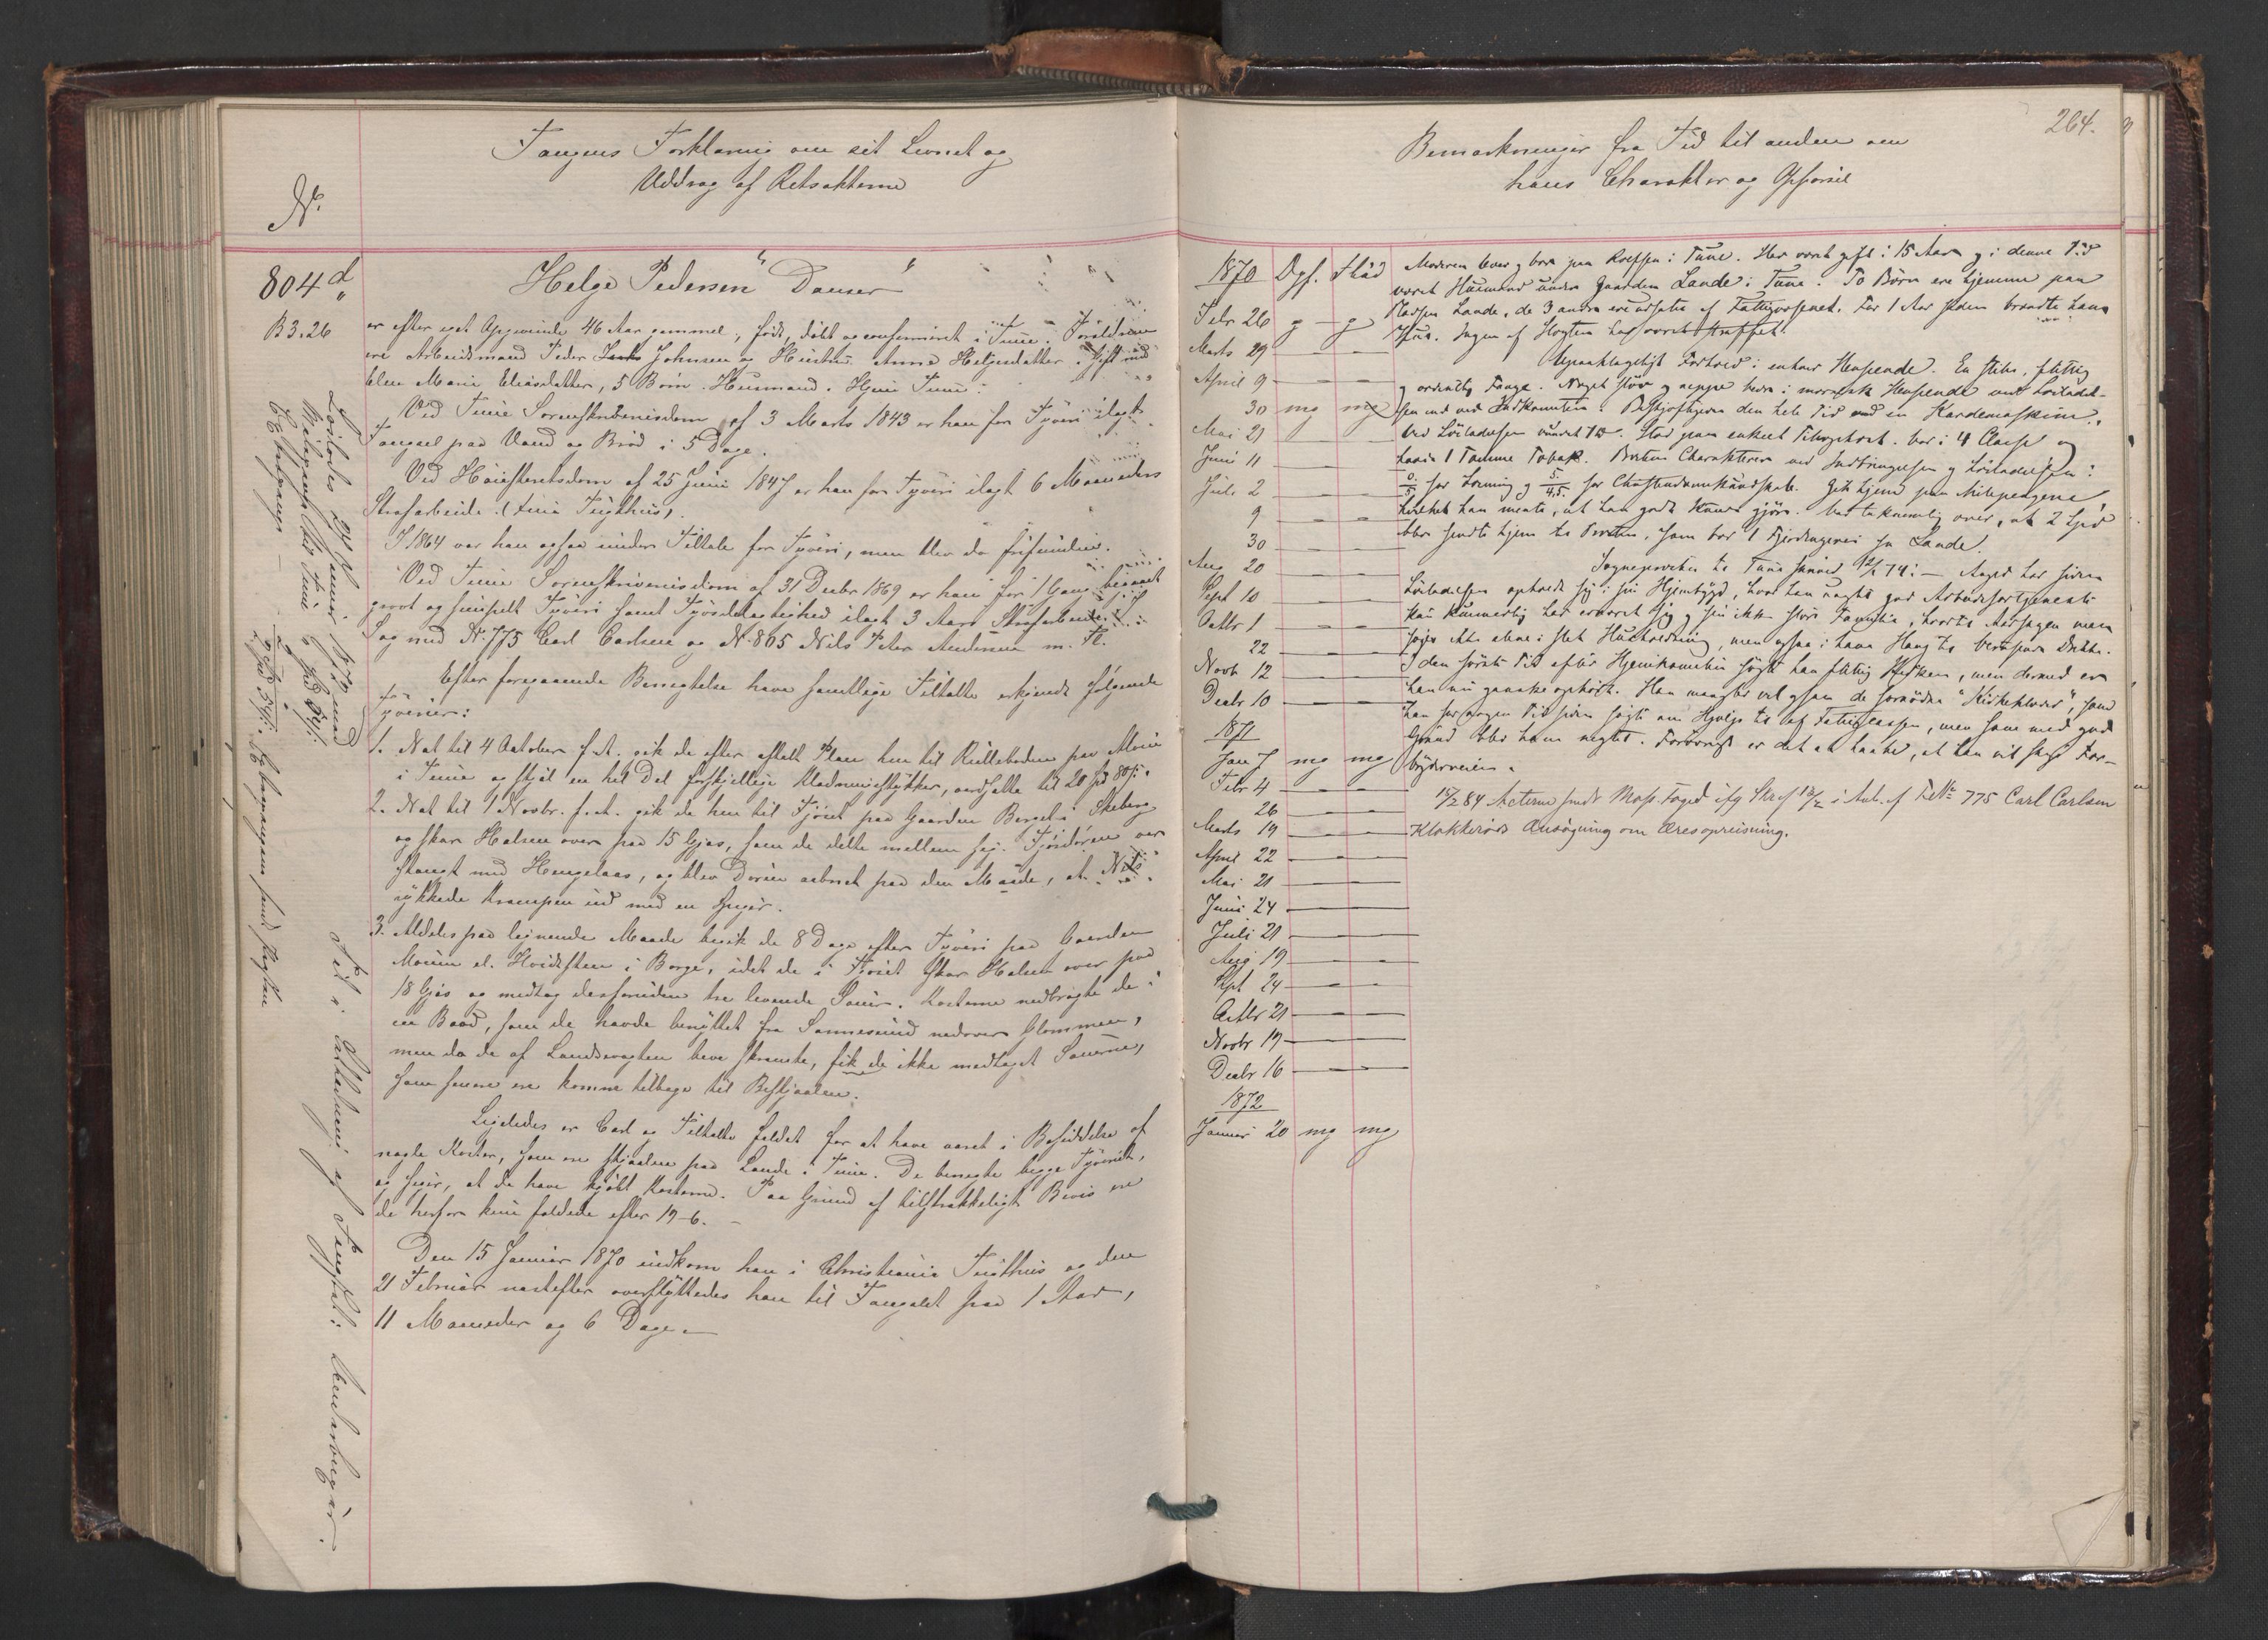 Fangens Forklaring om sit Levnet og
Uddrag af Retsakterne
No.
804 d
B 3.26
Helge Pedersen "Danser"
er efter eget Opgivende 46 Aar gammel, født, døbt og confirmeret i Tune. Forældrene
ere Arbeidsmand Peder Johnsen og Hustru Anne Helgesdatter. Gift med
Elen Marie Eliasdatter, 5 Børn. Husmand. Hjem Tune.
Ved Tune Sorenskriverisdom af 3 Marts 1843 er han for Tyveri ilagt
Fængsel paa Vand og Brød i 5 Dage.
Ved Høiesteretsdom af 25 Juni 1847 er han for Tyveri ilagt 6 Maaneders
Strafarbeide. (Xnia Tugthus).
I 1864 var han ogsaa under Tiltale for Tyveri, men blev da frifunden.
Ved Tune Sorenskriverisdom af 31 Decbr 1869 er han for 1 Gang begaaet
grovt og simpelt Tyveri samt Tyvsdelagtighed ilagt 3 Aars Strafarbeide. I
Sag med No. 775 Carl Carlsen og No. 805 Nils Peter Andersen m. Fl.
Efter foregaaende Benegtelse have samtlige Tiltalte erkjendt følgende
Tyverier:
1. Nat til 4 October f. A. gik de efter aftalt Plan hen til Rulleboden paa Alvim
i Tune og stjal en hel Del forskjellige Klædningsstykker, værdsatte til 20 Spd 80 ß.
2. Nat til 1 Novbr. f. A. gik de hen til Fjøset paa Gaarden Berget i Skeberg
og skar Halsen over paa 15 Gjæs, som de delte mellem sig. Fjøsdøren var
stængt med Hængelaas, og blev Døren aabnet paa den Maade, at Nils
rykkede Krampen ud med en Spiger.
3. Aldeles paa lignende Maade begik de 8 Dage efter Tyveri paa Gaarden
Moum el. Hvidsten i Borge, idet de i Fjøset skar Halsen over paa
18 Gjæs og medtog desforuden tre levende Souer. Kosterne nedbragte de i
en Baad, som de havde benyttet fra Sannesund nedover Glommen,
men da de af Landsvagten bleve skræmte, fik de ikke medtaget Souerne,
som senere ere komne tilbage til Bestjaalne.
Ligeledes er Carl og Tiltalte fældet for at have været i Besiddelse af
nogle Koster, som ere stjaalne paa Lande i Tune. De benegte begge Tyveriet,
og sige, at de have kjøbt Kosterne. Paa Grund af tilstrækkeligt Bevis ere
de herfor kun fældede efter 19-6.
Den 15 Januar 1870 indkom han i Christiania Tugthus og den
21 Februar næstefter overflyttedes han til Fængslet paa 1 Aar,
11 Maaneder og 6 Dage.
Løslodes 27 Januar 1872 med
Tid i Afdeling af Fængslet: Undervogter.
Bemærkninger fra Tid til anden om
hans Charakter og Opførsel
264.
1870 Opf. Flid
Febr 26 g g
Marts 29
April 9
30 mg mg
Mai 21
Juni 11
Juli 2
9
30
Aug 20
Sept 10
Octbr 1
22
Novb 12
Decbr 10
1871
Jan 7 mg mg
Febr 4
26
Marts 19
April 22
Mai 21
Juni 24
Juli 21
Aug 19
Sept 24
Octbr 21
Novbr 19
Decbr 16
1872
Januar 20 mg mg
Moderen lever og bor paa Rolfsøn i Tune. Har været gift i 15 Aar og i denne Tid
været Husmand under Gaarden Lande i Tune. To Børn ere hjemme paa
Pladsen Lande, de 3 andre ere udsatte af Fattigvæsenet. For 1 Aar siden brændte hans
Hus. Ingen af Slægten har været straffet.
Upaaklageligt Forhold i enhver Henseende. En stille, flittig
og ordentlig Fange. Noget sløv og neppe bedre i moralsk Henseende ved Løsladel-
sen end ved Indkomsten. Beskjæftiget den hele Tid ved en Kardemaskine.
Ved Løsladelsen vundet 1 ℔. Stod paa enkelt Tilregtevist. Var i 4 Classe og
havde 1 Tomme Tobak. Boglige Charakterer ved Indbringelsen og Løsladelsen:
0/5 for Læsning og 5/4,5 for Christendomskundskab. Gik hjem paa Milepengene
hvilket han mente, at han godt kunde gjøre. Var taknemlig over, at 2 Spd
blev sendte hjem til Præsten, som bor 1 Fjerdingvei fra Lande.
Sognepræsten til Tune skriver 12/1 74: — Anged har siden
Løsladelsen opholdt sig i sin Hjembygd, hvor han nagtet god Arbeidsfortjeneste
kun kummerlig har ernæret sig og sin ikke store Familie, hvortil Aarsagen maa
søges ikke alene i slet Husholdning, men ogsaa i hans Hang til berusende Drikke.
I den første Tid efter Hjemkomsten søgte han flittig Kirken, men dermed er
han nu ganske ophørt. Han mangler vel ogsaa de fornødne "Kirkeklæder", som
han for nogen Tid siden søgte om Hjelp til af Fattigcassen, men som med god
Grund blev ham negtet. Forøvrigt er det at haabe, at han vil sky For-
bryderveien.
15/2 84 Acterne sendt Moss Foged ifg Skr af 13/2 i Anl. af F. No 775 Carl Carlsen
Klokkerøds Ansøgning om Æresopreisning.